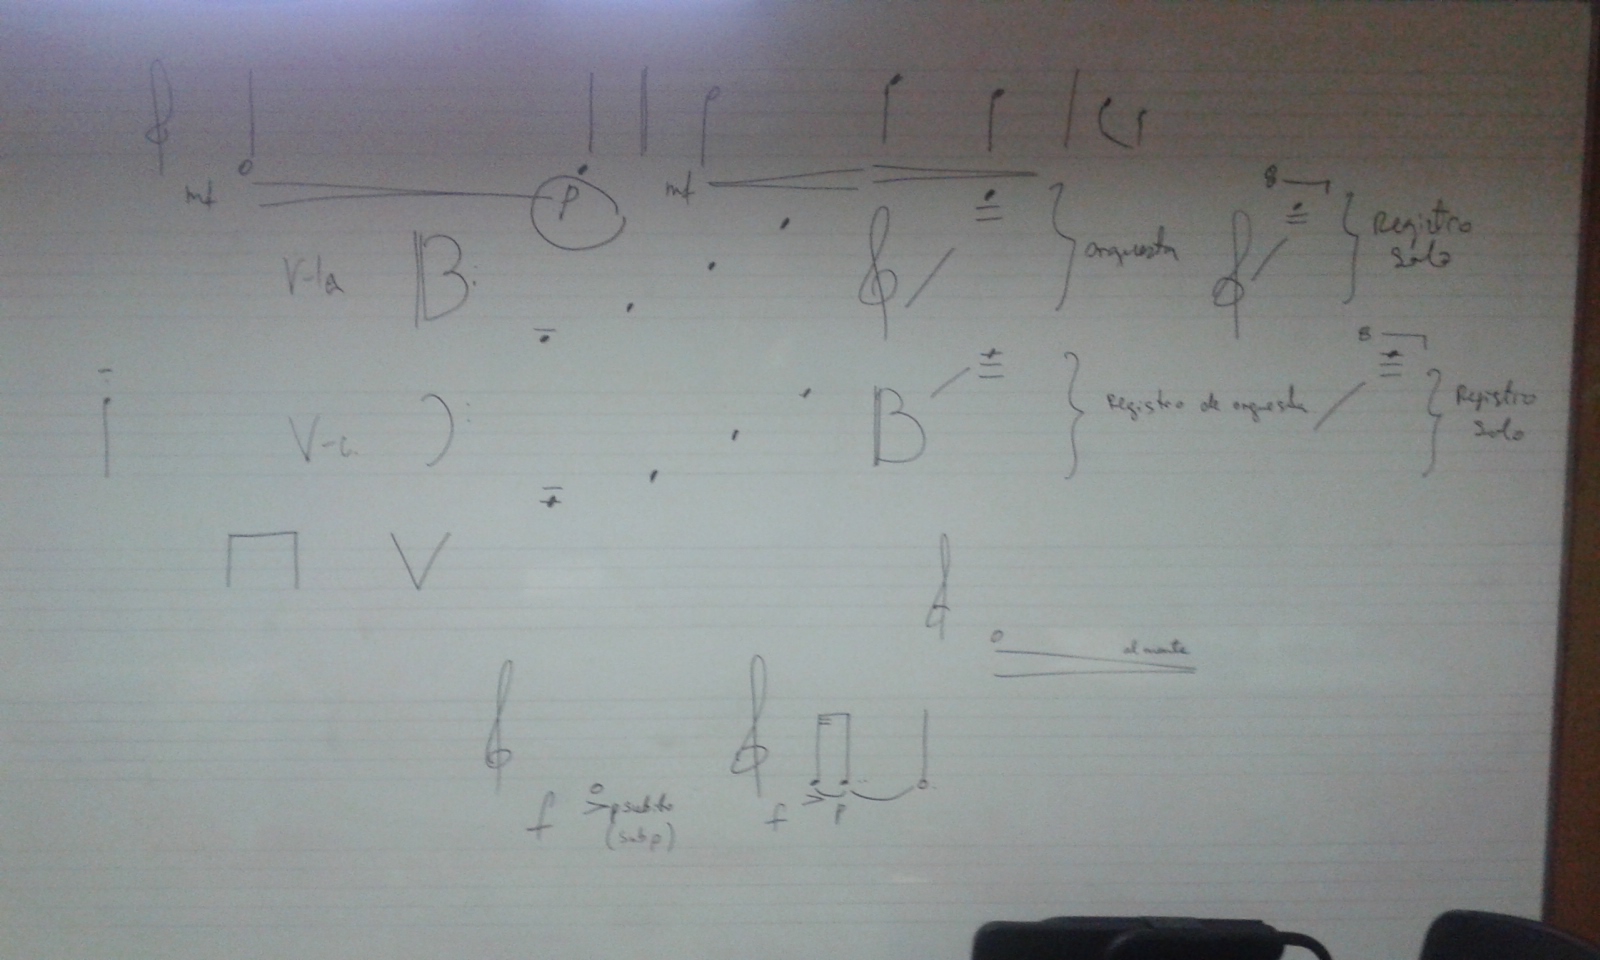 mf p mf
V-la orquesta 8 Registro solo
V-c. Registro de orquesta 8 Registro solo
al niente
f p subito f p
(sub p)